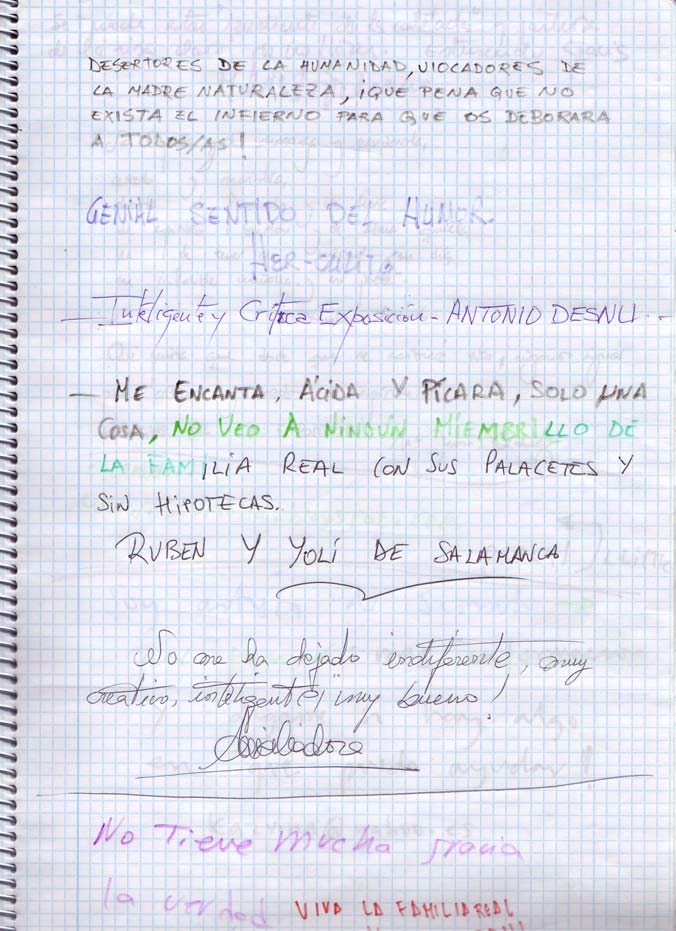 DESERTORES DE LA HUMANIDAD, VIOCADORES DE
LA MADRE NATURALEZA, ¡QUE PENA QUE NO
EXISTA EL INFIERNO PARA QUE OS DEBORARA
A TODOS/AS!
GENIAL SENTIDO DEL HUMOR
HER-CULITO
— Inteligente y Crítica Exposición - ANTONIO DESNLI. -
— ME ENCANTA, ÁCIDA Y PÍCARA, SOLO UNA
COSA, NO VEO A NINGÚN MIEMBRILLO DE
LA FAMILIA REAL CON SUS PALACETES Y
SIN HIPOTECAS.
RUBEN Y YOLI DE SALAMANCA
No me ha dejado indiferente, muy
creativo, inteligente, ¡muy bueno!
No Tiene mucha gracia
la verdad VIVA LA FAMILIA REAL